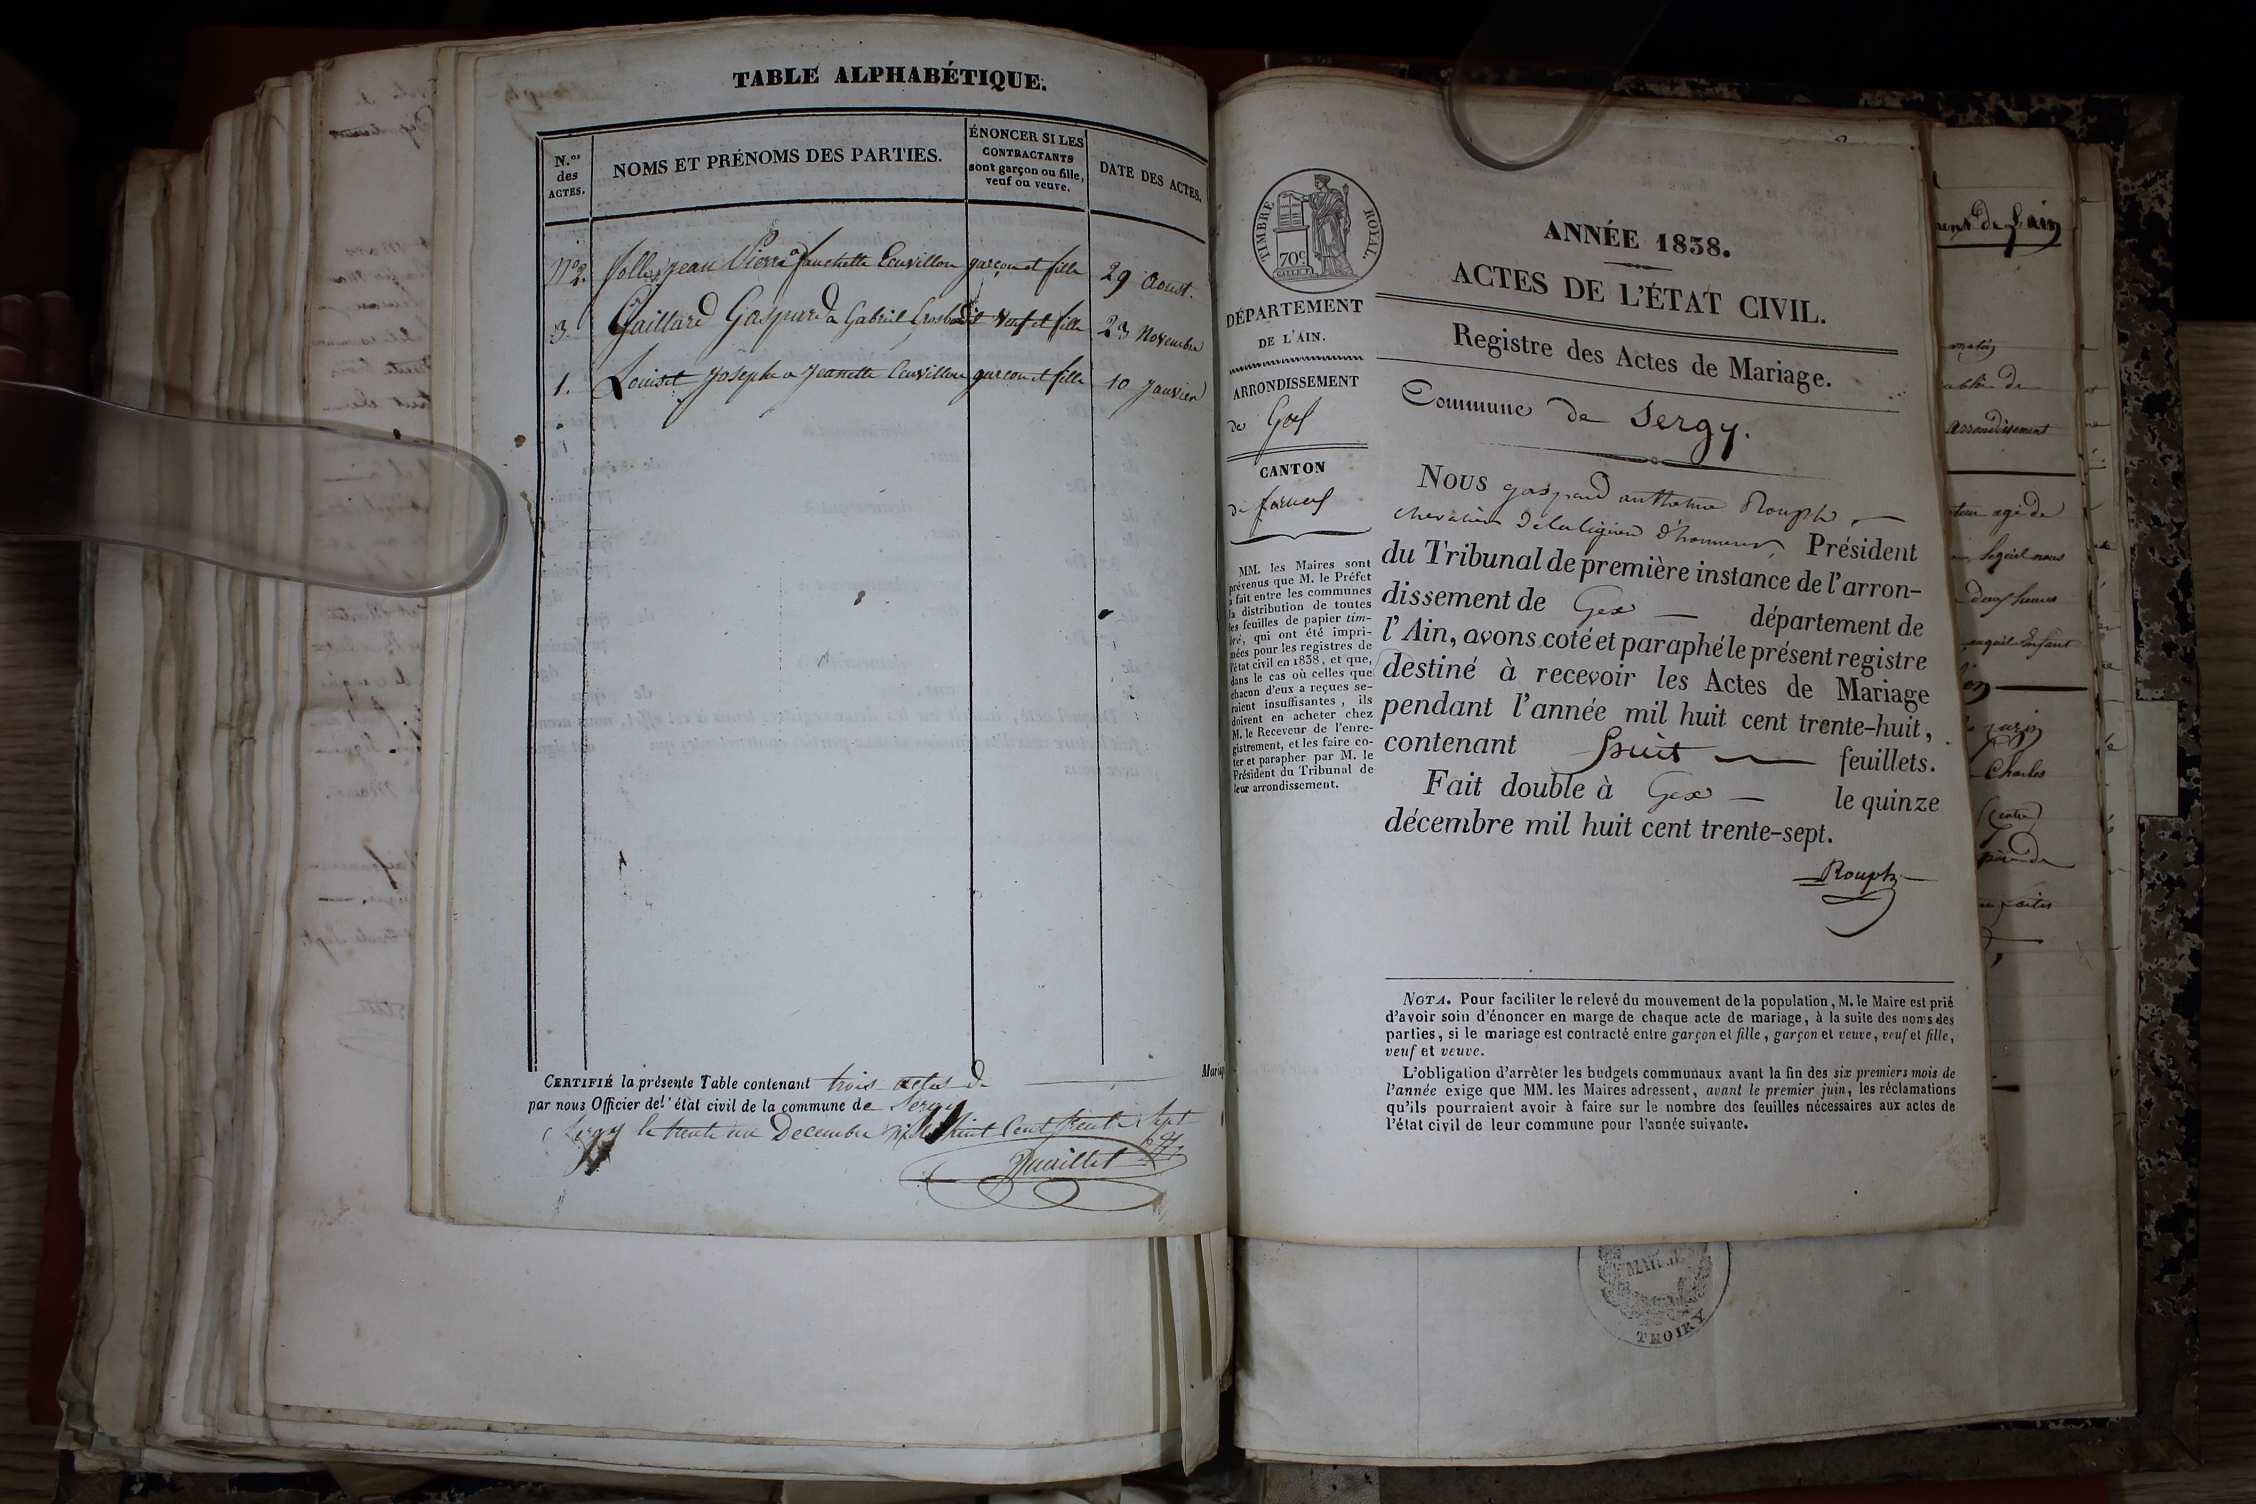 TABLE ALPHABÉTIQUE.
N.os
des
ACTES.
NOMS ET PRÉNOMS DES PARTIES.
ÉNONCER SI LES
CONTRACTANTS
sont garçon ou fille,
veuf ou veuve.
DATE DES ACTES.
N° 2. Jean Pierre a fanchette Ecuvillon garçon et fille 29 Aoust.
3. Gaillard Gaspard a Gabriel Grosbaud et veuf et fille 23 Novembre
1. Louiset Joseph a Jeanette Ecuvillon garçon et fille 10 Janvier
CERTIFIÉ la présente Table contenant trois actes de
Mariage
par nous Officier de l'état civil de la commune de Sergy
Sergy le trente un Decembre mil huit Cent trente Sept
TIMBRE ROYAL.
70c.
DÉPARTEMENT
DE L'AIN.
ARRONDISSEMENT
de Gex
CANTON
de ferney
MM. les Maires sont
prévenus que M. le Préfet
a fait entre les communes
la distribution de toutes
les feuilles de papier tim-
bré, qui ont été impri-
mées pour les registres de
l'état civil en 1838, et que,
dans le cas où celles que
chacun d'eux a reçues se-
raient insuffisantes, ils
doivent en acheter chez
M. le Receveur de l'enre-
gistrement, et les faire co-
ter et parapher par M. le
Président du Tribunal de
leur arrondissement.
ANNÉE 1838.
ACTES DE L'ÉTAT CIVIL.
Registre des Actes de Mariage.
Commune de Sergy.
Nous gaspard anthelme Rouph
chevalier de la légion d'honneur, Président
du Tribunal de première instance de l'arron-
dissement de Gex département de
l'Ain, avons coté et paraphé le présent registre
destiné à recevoir les Actes de Mariage
pendant l'année mil huit cent trente-huit,
contenant huit feuillets.
Fait double à Gex le quinze
décembre mil huit cent trente-sept.
Rouph
NOTA. Pour faciliter le relevé du mouvement de la population, M. le Maire est prié
d'avoir soin d'énoncer en marge de chaque acte de mariage, à la suite des noms des
parties, si le mariage est contracté entre garçon et fille, garçon et veuve, veuf et fille,
veuf et veuve.
L'obligation d'arrêter les budgets communaux avant la fin des six premiers mois de
l'année exige que MM. les Maires adressent, avant le premier juin, les réclamations
qu'ils pourraient avoir à faire sur le nombre des feuilles nécessaires aux actes de
l'état civil de leur commune pour l'année suivante.
de l'ain
arrondissement
age de
lequel nous
deux heures
Enfant
Charles
THOIRY